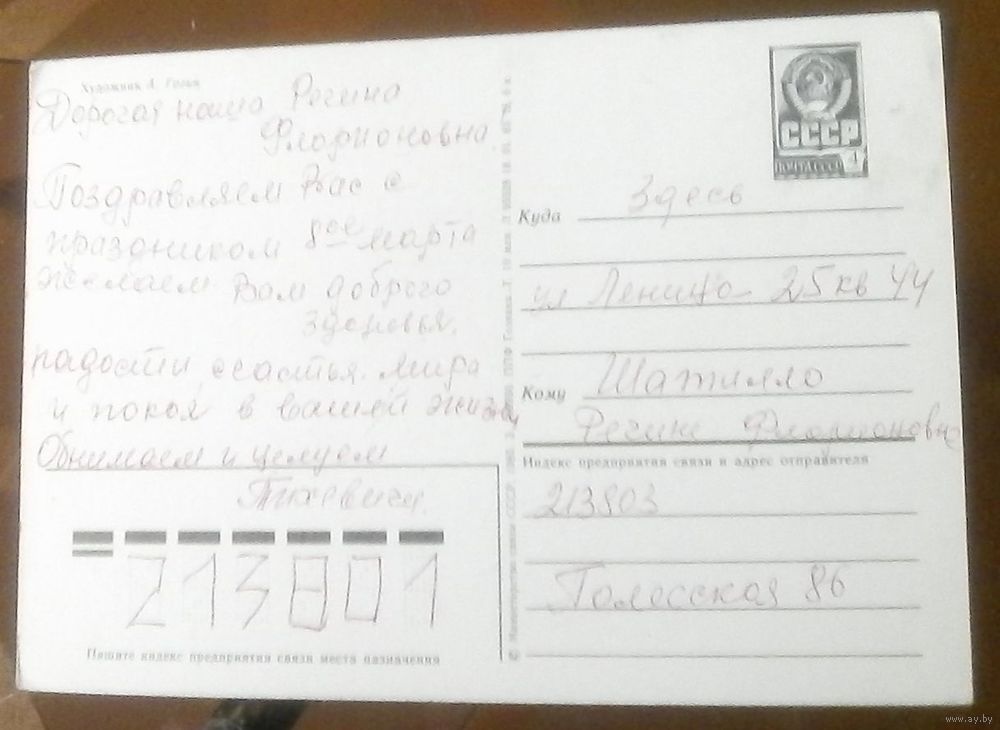 Художник А.
Дорогая наша Регина
Флорионовна.
Поздравляем Вас с
праздником 8ое марта
желаем Вам доброго
здоровья.
радости, счастья. мира
и покоя в вашей жизни
Обнимаем и целуем
Тихевичи.
213801
Пишите индекс предприятия связи места назначения
© Министерство связи СССР
СССР
ПОЧТА СССР 4
Куда Здесь
ул Ленина 25 кв 44
Кому Шатилло
Регине Флорионовне
Индекс предприятия связи и адрес отправителя
213803
Полесская 86
www.ay.by